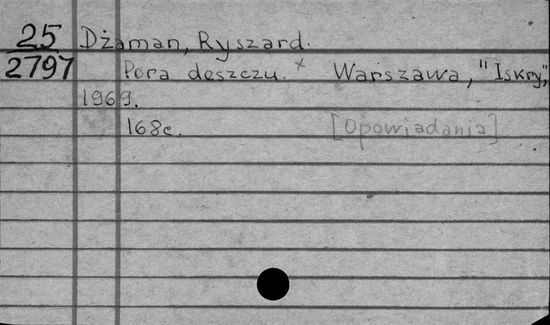 25 Dżaman, Ryszard.
2797 Pora deszczu. x Warszawa, "Iskry",
1969.
168c. [Opowiadania]